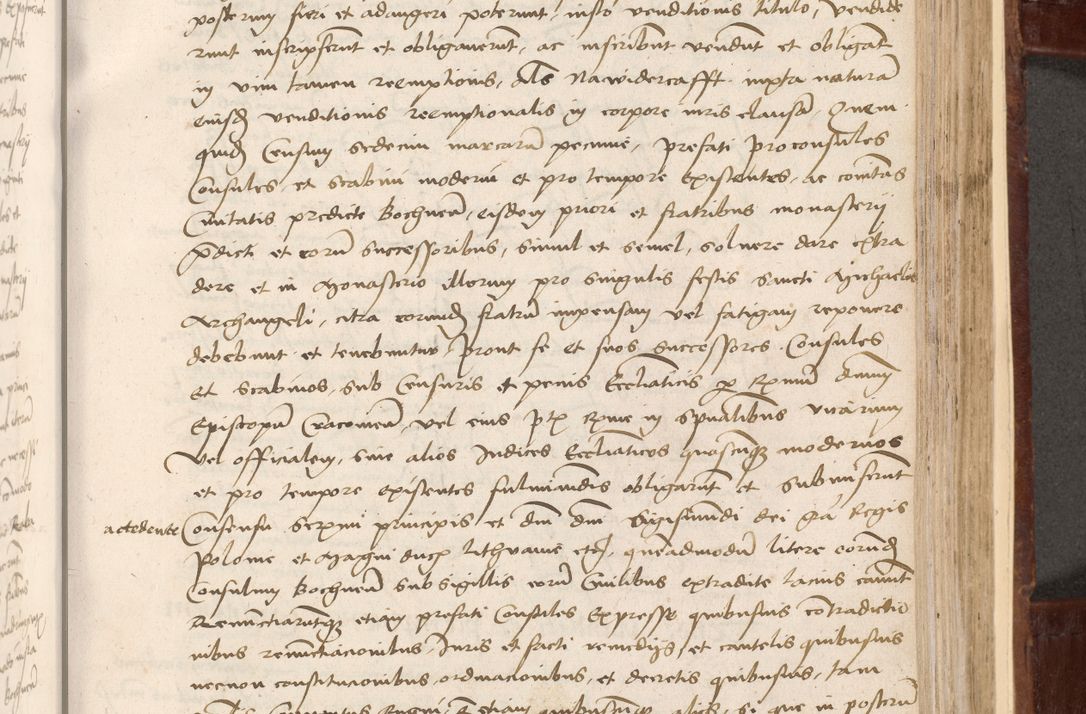 posterum fieri et adaugeri poterunt, iusto venditionis titulo, vendide
runt inscripserunt et obligaverunt, ac inscribunt vendunt et obligant
in vim tamen reemptionis, Als Nawidercafft iuxta naturã
eiusdẽ venditionis reemptionalis in corpore iuris clausã, Quem
quidẽ Censum sedecim marcarũ pecunie, prefati proconsules
Consules, et scabini moderni et pro tempore existentes, ac cõitas
Civitatis predicte Bochneñ, eisdem priori et fratribus monasterij
p̃dicti et eorũ successoribus, simul et semel, solvere dare extra
dere et in Monasterio illorum pro singulis festis Sancti Michaelis
Archangeli, citra eorundẽ fratrũ impensam vel fatigam reponere
debebunt et tenebuntur, prout se et suos successores Consules
et scabinos, sub Censuris et penis Eccliasticis p Rm̃um dnum
Episcopũ Cracovieñ, vel eius in spũalibus vicarium
vel officialem, sive alios Iudices Ecclĩaticos quoscũq modernos
et pro tempore existentes fulminandis obligarũt et submiserũt
accedente Consensu serẽmi principis et dni dni Sigismundi dei grã Regis
Polonie et Magni ducis Lithvanie etc, queadmodũ litere eorundẽ
Consulum Bochneñ sub sigillis eorũ Civilibus extradite lacius canũt
Renuncciarũtq etiam prefati Consules Expresse quibusvis cõtradictio
nibus renũctiacionibus, Iuris et facti remedijs, et cautelis quibusvis
necnon constitucionibus, ordinacionibus, et decretis quibusvis, tam
etiam quibuscũq alijs, si que in posterũ